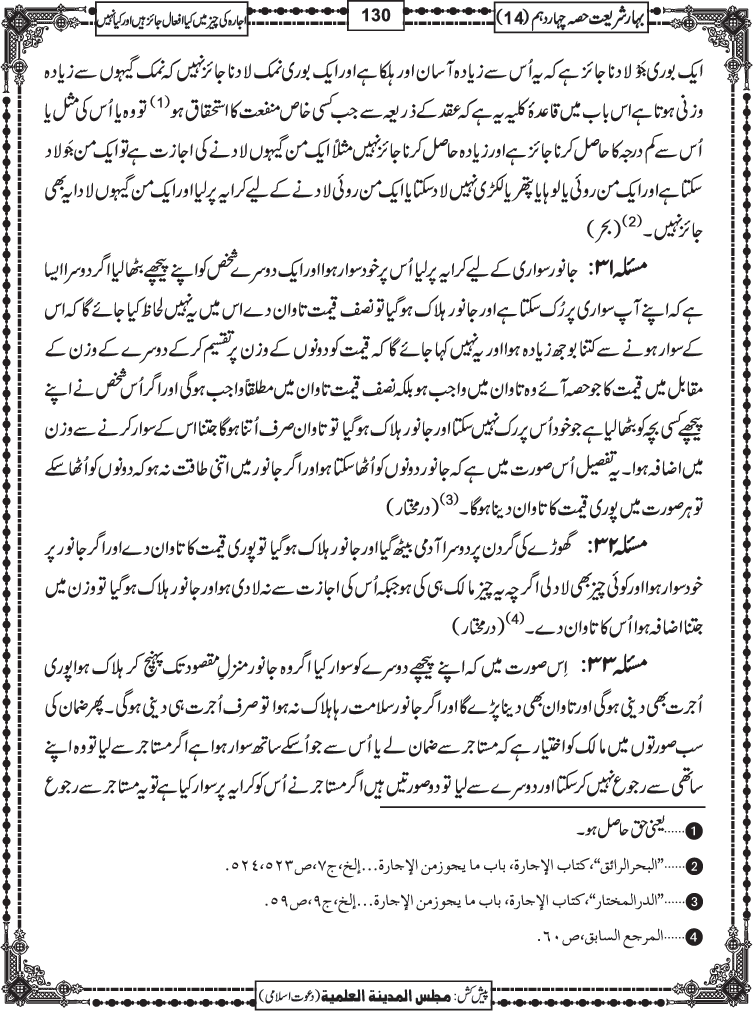 بہارِ شریعت حصہ چہاردہم (14)
130
اجارہ کی چیز میں کیا افعال جائز ہیں اور کیا نہیں
ایک بوری جَو لادنا جائز ہے کہ یہ اُس سے زیادہ آسان اور ہلکا ہے اور ایک بوری نمک لادنا جائز نہیں کہ نمک گیہوں سے زیادہ
وزنی ہوتا ہے اس باب میں قاعدۂ کلیہ یہ ہے کہ عقد کے ذریعہ سے جب کسی خاص منفعت کا استحقاق ہو(1) تو وہ یا اُس کی مثل یا
اُس سے کم درجہ کا حاصل کرنا جائز ہے اور زیادہ حاصل کرنا جائز نہیں مثلاً ایک من گیہوں لادنے کی اجازت ہے تو ایک من جَو لاد
سکتا ہے اور ایک من روئی یا لوہا یا پتھر یا لکڑی نہیں لاد سکتا یا ایک من روئی لادنے کے لیے کرایہ پر لیا اور ایک من گیہوں لادا یہ بھی
جائز نہیں۔(2) (بحر)
مسئلہ ۳۱: جانور سواری کے لیے کرایہ پر لیا اُس پر خود سوار ہوا اور ایک دوسرے شخص کو اپنے پیچھے بٹھا لیا اگر دوسرا ایسا
ہے کہ اپنے آپ سواری پر رُک سکتا ہے اور جانور ہلاک ہو گیا تو نصف قیمت تاوان دے اس میں یہ نہیں لحاظ کیا جائے گا کہ اس
کے سوار ہونے سے کتنا بوجھ زیادہ ہوا اور یہ نہیں کہا جائے گا کہ قیمت کو دونوں کے وزن پر تقسیم کر کے دوسرے کے وزن کے
مقابل میں قیمت کا جو حصہ آئے وہ تاوان میں واجب ہو بلکہ نصف قیمت تاوان میں مطلقاً واجب ہوگی اور اگر اُس شخص نے اپنے
پیچھے کسی بچہ کو بٹھا لیا ہے جو خود اُس پر رک نہیں سکتا اور جانور ہلاک ہو گیا تو تاوان صرف اُتنا ہوگا جتنا اس کے سوار کرنے سے وزن
میں اضافہ ہوا۔ یہ تفصیل اُس صورت میں ہے کہ جانور دونوں کو اُٹھا سکتا ہو اور اگر جانور میں اتنی طاقت نہ ہو کہ دونوں کو اُٹھا سکے
تو ہر صورت میں پوری قیمت کا تاوان دینا ہوگا۔(3) (درمختار)
مسئلہ ۳۲: گھوڑے کی گردن پر دوسرا آدمی بیٹھ گیا اور جانور ہلاک ہو گیا تو پوری قیمت کا تاوان دے اور اگر جانور پر
خود سوار ہوا اور کوئی چیز بھی لاد لی اگرچہ یہ چیز مالک ہی کی ہو جبکہ اُس کی اجازت سے نہ لادی ہو اور جانور ہلاک ہو گیا تو وزن میں
جتنا اضافہ ہوا اُس کا تاوان دے۔(4) (درمختار)
مسئلہ ۳۳: اِس صورت میں کہ اپنے پیچھے دوسرے کو سوار کیا اگر وہ جانور منزلِ مقصود تک پہنچ کر ہلاک ہوا پوری
اُجرت بھی دینی ہوگی اور تاوان بھی دینا پڑے گا اور اگر جانور سلامت رہا ہلاک نہ ہوا تو صرف اُجرت ہی دینی ہوگی۔ پھر ضمان کی
سب صورتوں میں مالک کو اختیار ہے کہ مستاجر سے ضمان لے یا اُس سے جو اُسکے ساتھ سوار ہوا ہے اگر مستاجر سے لیا تو وہ اپنے
ساتھی سے رجوع نہیں کر سکتا اور دوسرے سے لیا تو دو صورتیں ہیں اگر مستاجر نے اُس کو کرایہ پر سوار کیا ہے تو یہ مستاجر سے رجوع
1......یعنی حق حاصل ہو۔
2......"البحرالرائق"، کتاب الإجارة، باب ما يجوز من الإجارة...إلخ، ج۷، ص۵۲۳، ۵۲٤.
3......"الدرالمختار"، کتاب الإجارة، باب ما يجوز من الإجارة...إلخ، ج۹، ص۵۹.
4......المرجع السابق، ص۶۰.
پیش کش: مجلس المدینۃ العلمیۃ (دعوتِ اسلامی)